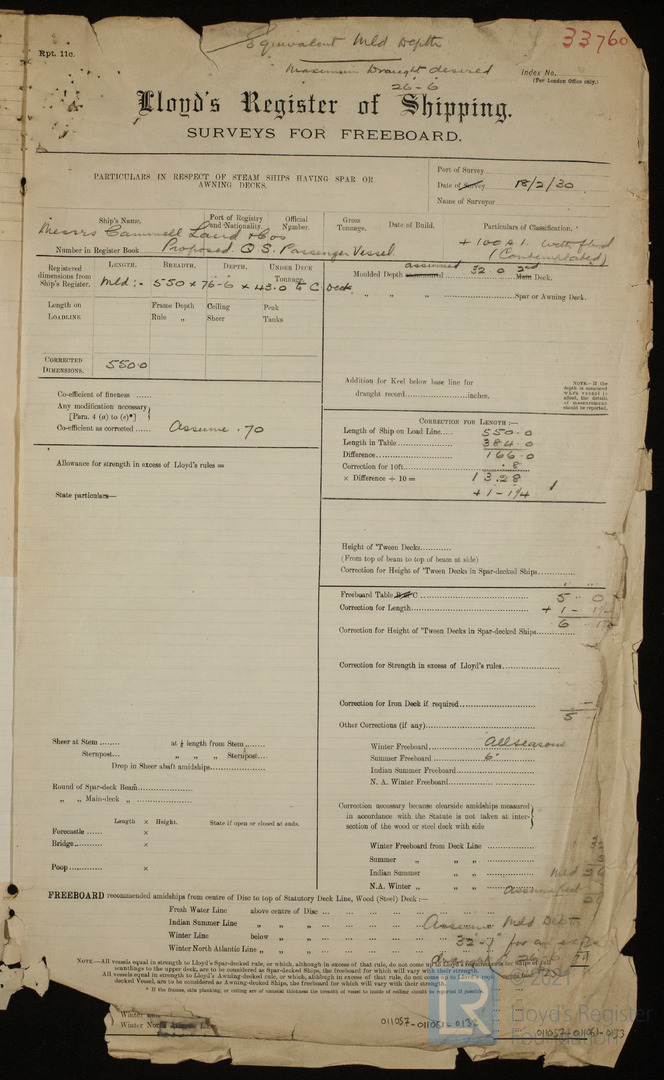 Rpt. 11c.
Equivalent Mld Depth
33760
Maximum Draught desired
26-6
Index No.
(For London Office only.)
Lloyd's Register of Shipping.
SURVEYS FOR FREEBOARD.
PARTICULARS IN RESPECT OF STEAM SHIPS HAVING SPAR OR AWNING DECKS.
Port of Survey
Date of Survey 18/2/30
Name of Surveyor
Ship's Name.
Port of Registry and Nationality.
Official Number.
Gross Tonnage.
Date of Build.
Particulars of Classification.
Messrs Cammell Laird & Cos
Proposed Q S. Passenger Vessel
+ 100 A 1. with fbd
(Contemplated)
Number in Register Book
Registered dimensions from Ship's Register.
LENGTH. BREADTH. DEPTH. UNDER DECK TONNAGE.
Mld :- 550 x 76-6 x 43.0 to C Deck
Length on LOADLINE
Frame Depth
Rule "
Ceiling
Sheer
Peak
Tanks
CORRECTED DIMENSIONS. 550.0
assumed
Moulded Depth 32.0 2nd Main Deck.
" " " Spar or Awning Deck.
Co-efficient of fineness
Any modification necessary
[Para. 4 (a) to (e)*]
Co-efficient as corrected Assume .70
Addition for Keel below base line for
draught record inches.
NOTE.—If the depth is measured when vessel is afloat, the details of measurement should be reported.
Allowance for strength in excess of Lloyd's rules =
State particulars—
CORRECTION FOR LENGTH :—
Length of Ship on Load Line 550.0
Length in Table 384.0
Difference 166.0
Correction for 10ft. .8
× Difference ÷ 10 = 13.28
+1-1¼
Height of 'Tween Decks
(From top of beam to top of beam at side)
Correction for Height of 'Tween Decks in Spar-decked Ships
Freeboard Table C 5 . 0
Correction for Length + 1 - 1¼
6
Correction for Height of 'Tween Decks in Spar-decked Ships
Correction for Strength in excess of Lloyd's rules
Correction for Iron Deck if required
5
Other Corrections (if any)
Winter Freeboard All seasons
Summer Freeboard 6
Indian Summer Freeboard
N. A. Winter Freeboard
Sheer at Stem at ⅛ length from Stem
Sternpost " " " Sternpost
Drop in Sheer abaft amidships
Round of Spar-deck Beam
" " Main-deck "
Length × Height. State if open or closed at ends.
Forecastle ×
Bridge ×
Poop ×
Correction necessary because clearside amidships measured
in accordance with the Statute is not taken at inter-
section of the wood or steel deck with side
Winter Freeboard from Deck Line
Summer " " "
Indian Summer " " Mld
N.A. Winter " "
FREEBOARD recommended amidships from centre of Disc to top of Statutory Deck Line, Wood (Steel) Deck :—
Fresh Water Line above centre of Disc
Indian Summer Line " " "
Winter Line below " "
Winter North Atlantic Line " " "
Assume Mld Depth
32-7 for an
NOTE.—All vessels equal in strength to Lloyd's Spar-decked rule, or which, although in excess of that rule, do not come up to
scantlings to the upper deck, are to be considered as Spar-decked Ships, the freeboard for which will vary with their strength.
All vessels equal in strength to Lloyd's Awning-decked rule, or which, although in excess of that rule, do not come up to Lloyd's
decked Vessel, are to be considered as Awning-decked Ships, the freeboard for which will vary with their strength.
* If the frames, skin planking, or ceiling are of unusual thickness the breadth of vessel to inside of ceiling should be reported if possible.
Winter
Winter North Atlantic
011057-011061-0132
011057-011061-0133
© 2021
Lloyd's Register
Foundation